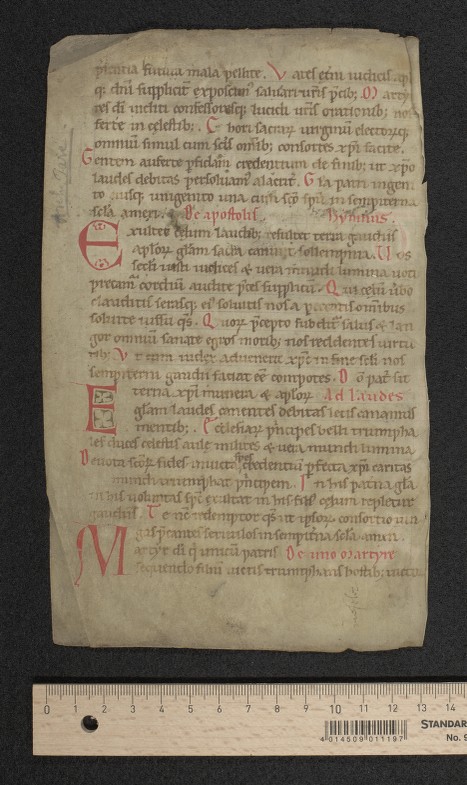 sentia futura mala pellite. Vates etni iudicis. apli
q; dni supplicit exposcim saluari uris pcib; Marty
res di incliti confessoresq; lucidi uris orationib; nos
ferte in celestib; Chori sacrar uirginu electorq;
omniu simul cum scis omib; consortes xpi facite.
Gentem auferte pfidam credentium de finib; ut xpo
laudes debitas persoluam alacrit. Gla patri ingeni
to eiusq; unigenito una cum sco spu in sempiterna
scla amen. De apostolis. Hymnus.
Exultet celum laudib; resultet terra gaudiis
aplor glam sacra canunt sollempnia. Vos
secli iusti iudices & uera mundi lumina uoti
precam cordium audite pces supplicu. Qui celu ubo
clauditis serasq; ei solutis nos a peccatis omibus
soluite iussu qs. Quor pcepto subdit salus & lan
gor omniu sanate egros morib; nos reddentes uirtu
tib; Ut cum iudex aduenerit xpc in fine scli nos
sempiterni gaudii faciat ee compotes. Do patri sit
Eterna xpi munera & aplor Ad laudes
glam laudes canentes debitas letis canamus
mentib; Ecclesiar principes belli triumpha
les duces celestis aule milites & uera mundi lumina
Deuota scor fides inuicta spes credentiu perfecta xpi caritas
mundi triumphat principem. In his patris gla
in his uoluntas spc exultat in his fili celum repletur
gaudiis. Te nc redemptor qs ut ipsor consortio iun
gas pcantes seruulos in sempiterna scla. amen.
Martyr di q unicum patris De uno Martyre
sequendo filiu uictis triumphas hostib; uictor
0 1 2 3 4 5 6 7 8 9 10 11 12 13 14
4 014509 011197
STANDAR
No. 9